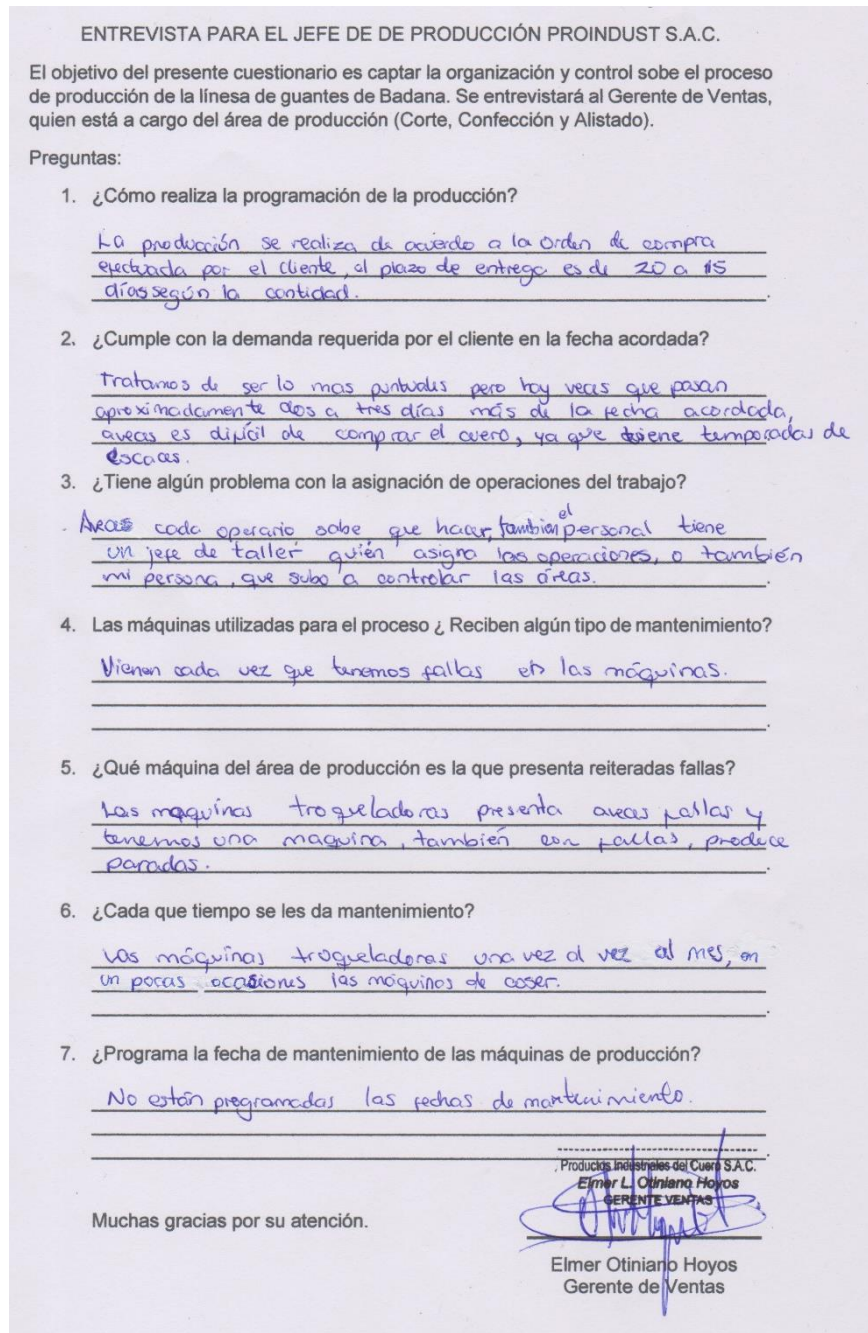 ENTREVISTA PARA EL JEFE DE DE PRODUCCIÓN PROINDUST S.A.C.
El objetivo del presente cuestionario es captar la organización y control sobe el proceso
de producción de la línesa de guantes de Badana. Se entrevistará al Gerente de Ventas,
quien está a cargo del área de producción (Corte, Confección y Alistado).
Preguntas:
1. ¿Cómo realiza la programación de la producción?
La producción se realiza de acuerdo a la orden de compra
efectuada por el cliente, el plazo de entrega es de 20 a 15
días según la cantidad.
2. ¿Cumple con la demanda requerida por el cliente en la fecha acordada?
Tratamos de ser lo mas puntuales pero hay veces que pasan
aproximadamente dos a tres días más de la fecha acordada,
aveces es difícil de comprar el cuero, ya que tiene temporadas de
escaces.
3. ¿Tiene algún problema con la asignación de operaciones del trabajo?
cada operario sabe que hacer, también el personal tiene
un jefe de taller quién asigna las operaciones, o también
mi persona, que subo a controlar las áreas.
4. Las máquinas utilizadas para el proceso ¿ Reciben algún tipo de mantenimiento?
Vienen cada vez que tenemos fallas en las máquinas.
5. ¿Qué máquina del área de producción es la que presenta reiteradas fallas?
Las maquínas troqueladoras presenta aveces fallas y
tenemos una maquina, también con fallas, produce
paradas.
6. ¿Cada que tiempo se les da mantenimiento?
Las máquínas troqueladoras una vez al vez al mes, en
un pocas ocasiones las máquinas de coser.
7. ¿Programa la fecha de mantenimiento de las máquinas de producción?
No están programadas las fechas de mantenimiento.
Productos Industriales del Cuero S.A.C.
Elmer L. Otiniano Hoyos
GERENTE VENTAS
Muchas gracias por su atención.
Elmer Otiniano Hoyos
Gerente de Ventas